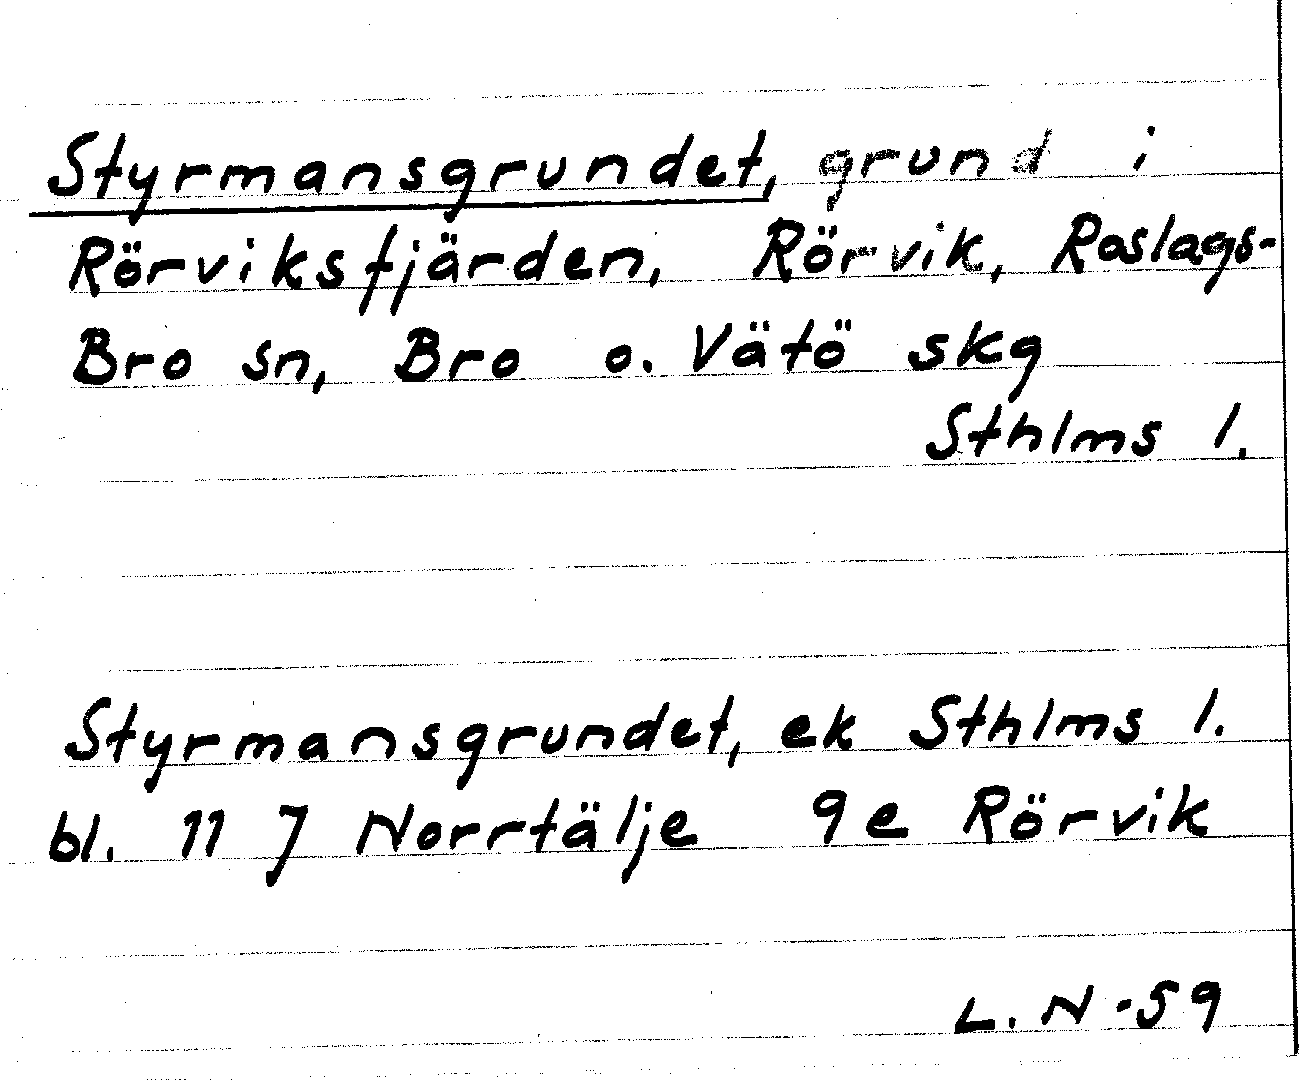 Styrmansgrundet, grund i
Rörviksfjärden, Rörvik, Roslags-
Bro sn, Bro o. Vätö skg
Sthlms l.
Styrmansgrundet, ek Sthlms l.
bl. 11 J Norrtälje 9e Rörvik
L. N -59